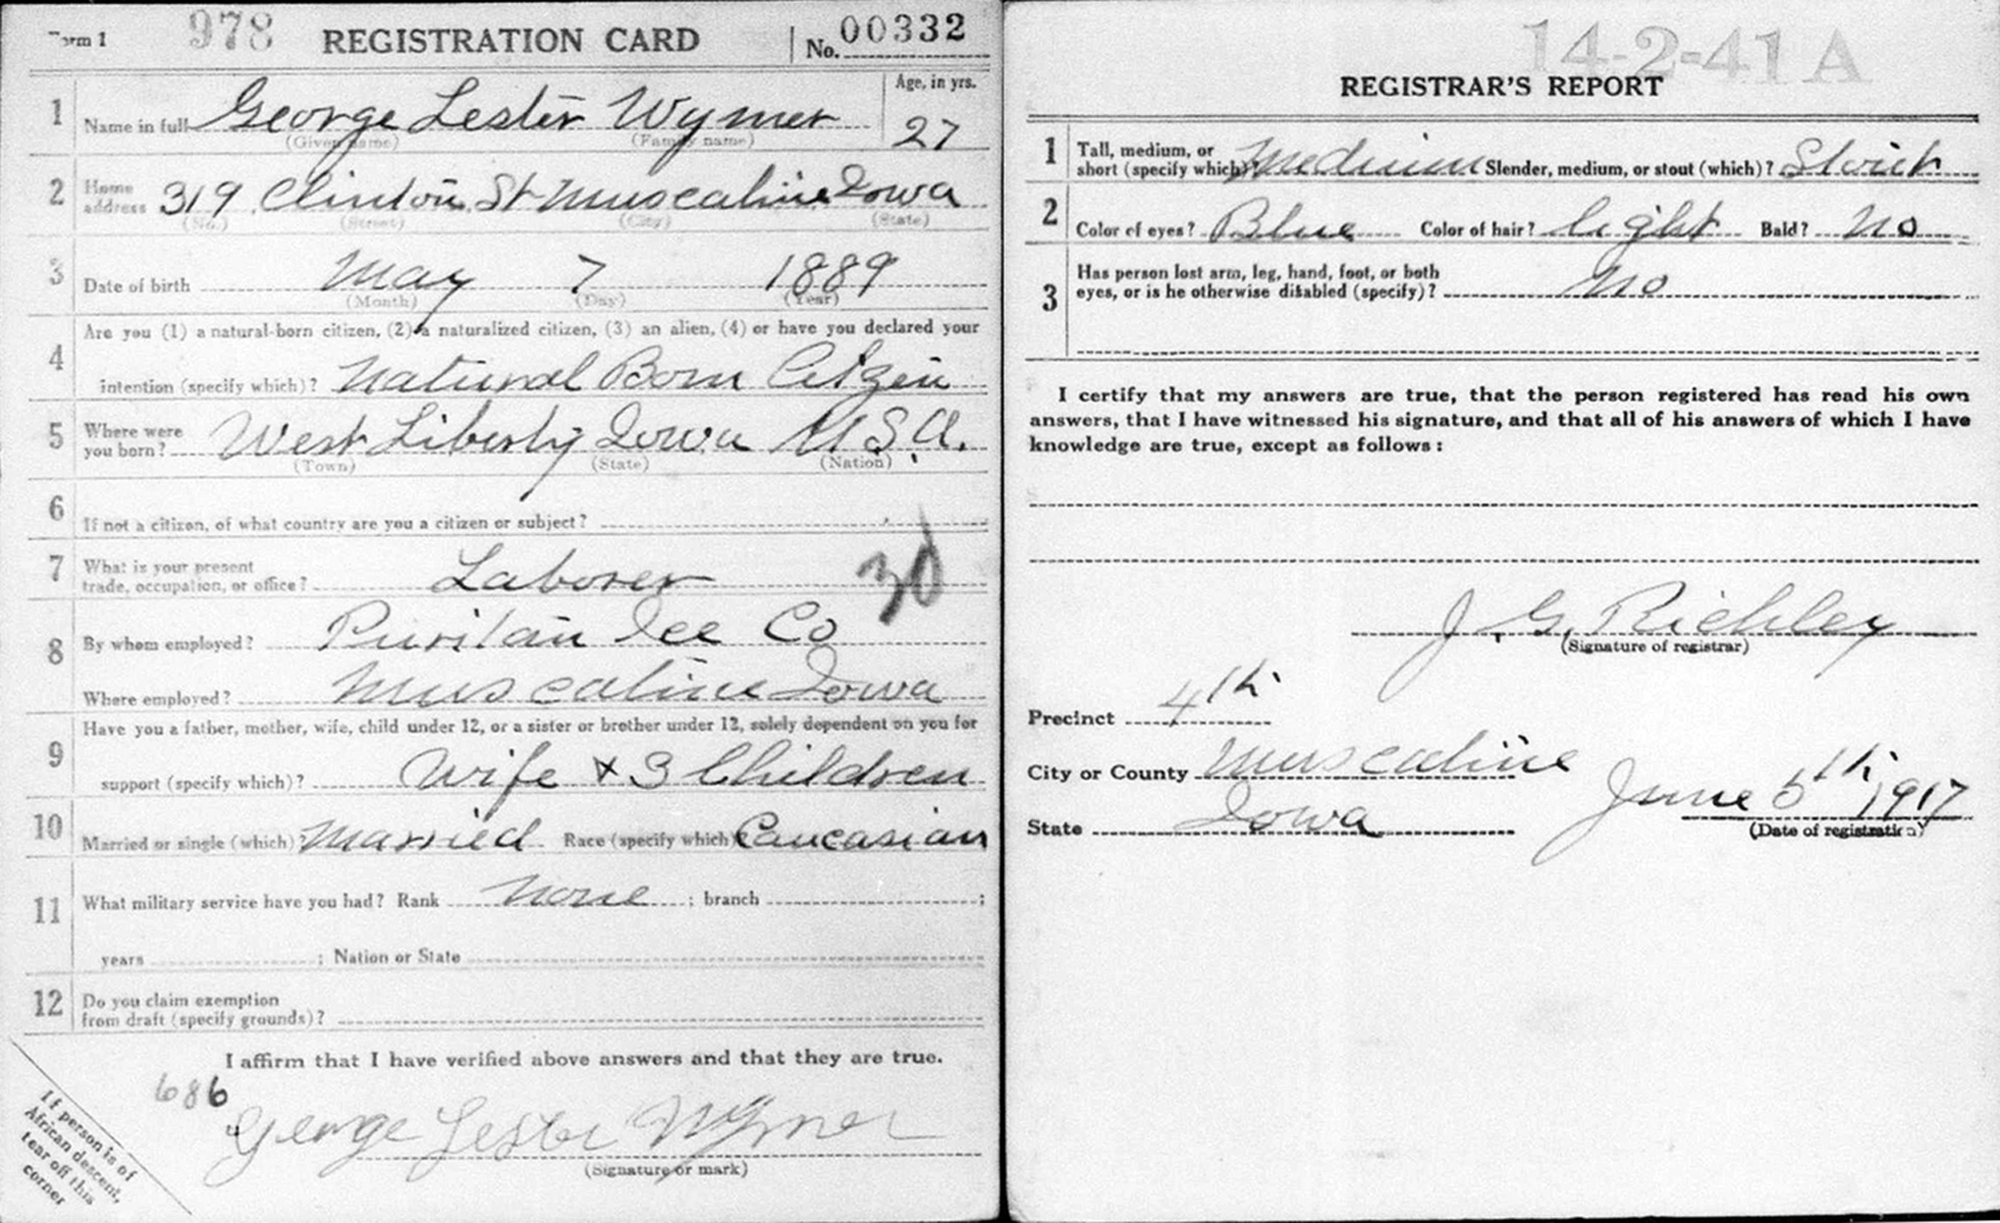 978 REGISTRATION CARD No. 00332
1 Name in full George Lester Wymer Age, in yrs. 27
(Given name) (Family name)
2 Home address 319 Clinton St Muscatine Iowa
(No.) (Street) (City) (State)
3 Date of birth May 7 1889
(Month) (Day) (Year)
4 Are you (1) a natural-born citizen, (2) a naturalized citizen, (3) an alien, (4) or have you declared your
intention (specify which)? Natural Born Citizen
5 Where were you born? West Liberty Iowa U.S.A.
(Town) (State) (Nation)
6 If not a citizen, of what country are you a citizen or subject?
7 What is your present
trade, occupation, or office? Laborer
8 By whom employed? Puritan Ice Co
Where employed? Muscatine Iowa
9 Have you a father, mother, wife, child under 12, or a sister or brother under 12, solely dependent on you for
support (specify which)? Wife & 3 Children
10 Married or single (which)? Married Race (specify which)? Caucasian
11 What military service have you had? Rank None ; branch ;
years ; Nation or State
12 Do you claim exemption
from draft (specify grounds)?
I affirm that I have verified above answers and that they are true.
686
George Lester Wymer
(Signature or mark)
If person is of
African descent,
tear off this
corner
14-2-41 A
REGISTRAR'S REPORT
1 Tall, medium, or
short (specify which)? Medium Slender, medium, or stout (which)? Stout
2 Color of eyes? Blue Color of hair? light Bald? No
3 Has person lost arm, leg, hand, foot, or both
eyes, or is he otherwise disabled (specify)? No
I certify that my answers are true, that the person registered has read his own
answers, that I have witnessed his signature, and that all of his answers of which I have
knowledge are true, except as follows:
J. G. Richley
(Signature of registrar)
Precinct 4th
City or County Muscatine
State Iowa June 5th 1917
(Date of registration)